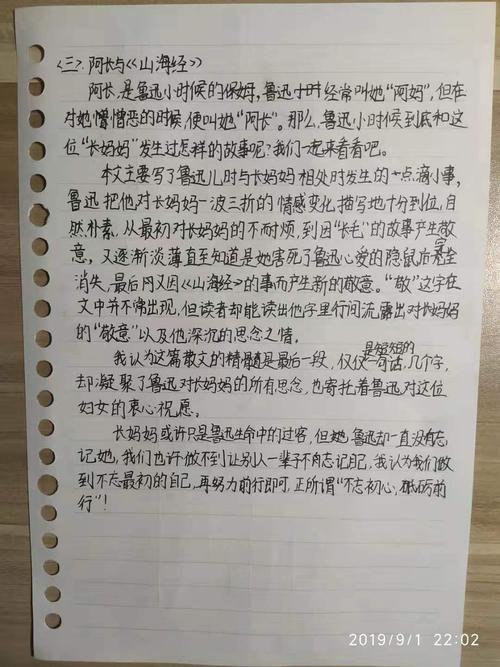 <三>. 阿长与《山海经》
阿长,是鲁迅小时候的保姆,鲁迅小时经常叫她"阿妈",但在
对她憎憎恶的时候,便叫她"阿长"。那么,鲁迅小时候到底和这
位"长妈妈"发生过怎样的故事呢?我们一起来看看吧。
本文主要写了鲁迅儿时与长妈妈相处时发生的一点滴小事,
鲁迅把他对长妈妈一波三折的情感变化描写地十分到位,自
然朴素,从最初对长妈妈的不耐烦,到因"长毛"的故事产生敬
意,又逐渐淡薄直至知道是她害死了鲁迅心爱的隐鼠后完全
消失,最后又因《山海经》的事而产生新的敬意。"敬"这字在
文中并不常出现,但读者却能读出他字里行间流露出对长妈妈
的"敬意"以及他深沉的思念之情。
我认为这篇散文的精髓是最后一段,仅仅是短短的一句话,几个字,
却凝聚了鲁迅对长妈妈的所有思念,也寄托着鲁迅对这位
妇女的衷心祝愿。
长妈妈或许只是鲁迅生命中的过客,但她鲁迅却一直没有忘
记她,我们也许做不到让别人一辈子不忘记自己,我认为我们做
到不忘最初的自己,再努力前行即可,正所谓"不忘初心,砥砺前
行"!
2019/9/1 22:02